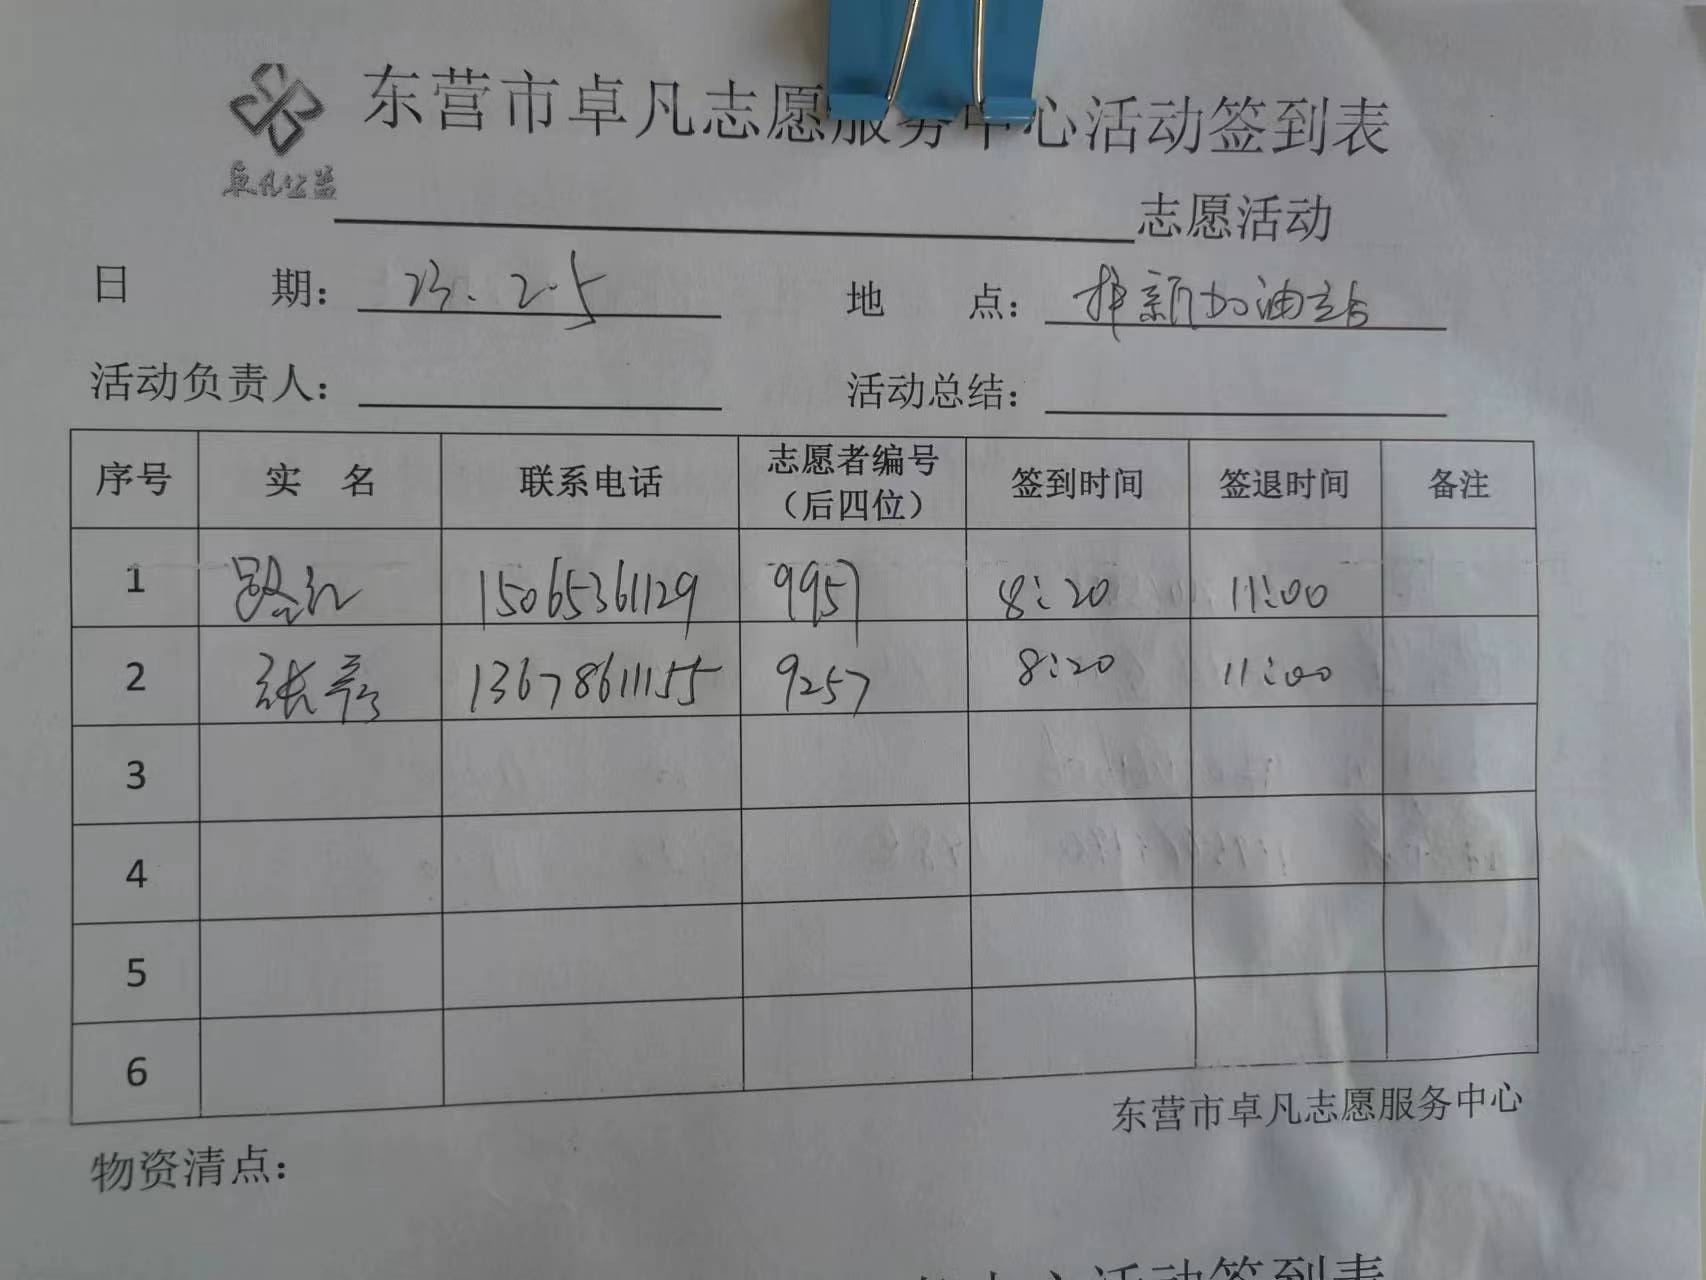 东营市卓凡志愿服务中心活动签到表
卓凡公益
志愿活动
日 期: 23.2.5 地 点: 新加油站
活动负责人: 活动总结:
序号 实 名 联系电话 志愿者编号（后四位） 签到时间 签退时间 备注
1 路红 15065361129 9957 8:20 11:00
2 张彦 13678611155 9257 8:20 11:00
3
4
5
6
东营市卓凡志愿服务中心
物资清点:
中心活动签到表